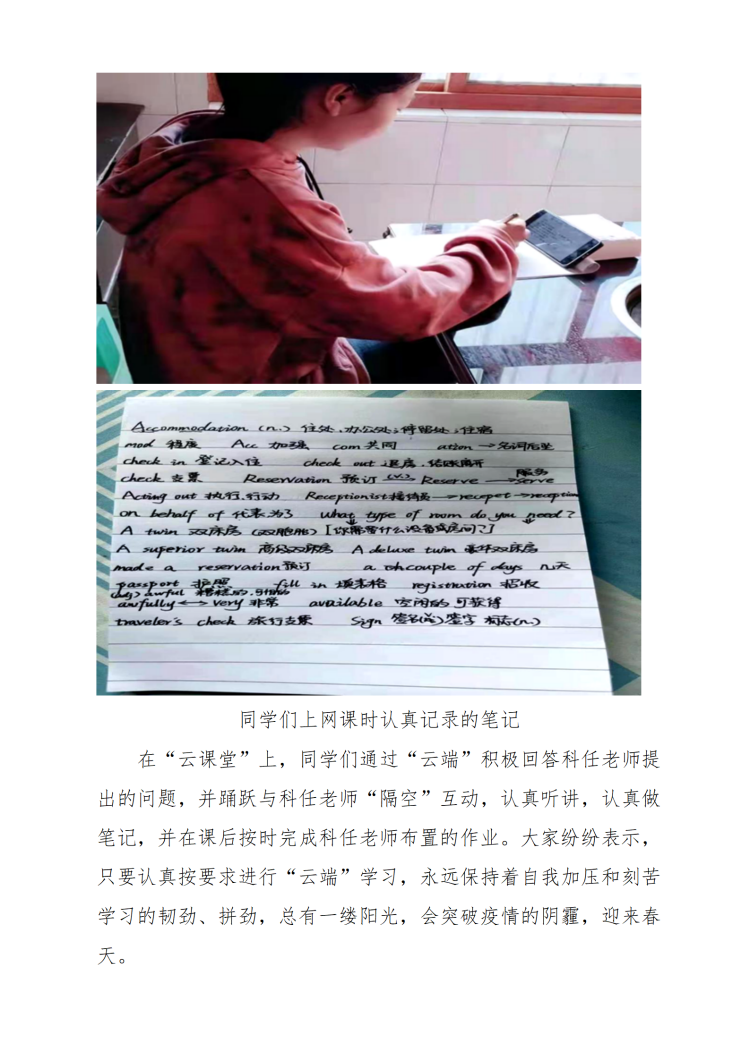 Accommodation (n.) 住处,办公处;停留处;住宿
mod 程度 Acc 加强 com共同 ation → 名词后坠
check in 登记入住 check out 退房,结账离开
服务
check 支票 Reservation 预订 (v.) Reserve → serve
Acting out 执行,行动 Receptionist接待员 → recepet → reception
on behalf of 代表,为了 what type of room do you need?
A twin 双床房 (双胞胎) [你需要什么设备或房间?]
A superior twin 高级双床房 A deluxe twin 豪华双床房
made a reservation预订 a couple of days 几天
passport 护照 fill in 填表格 registration 招收
(adj) awful 糟糕的,
awfully ↔ very 非常 available 空闲的 可获得
traveler's check 旅行支票 Sign 签名(v)签字 标志(n.)
同学们上网课时认真记录的笔记
在“云课堂”上，同学们通过“云端”积极回答科任老师提
出的问题，并踊跃与科任老师“隔空”互动，认真听讲，认真做
笔记，并在课后按时完成科任老师布置的作业。大家纷纷表示，
只要认真按要求进行“云端”学习，永远保持着自我加压和刻苦
学习的韧劲、拼劲，总有一缕阳光，会突破疫情的阴霾，迎来春
天。